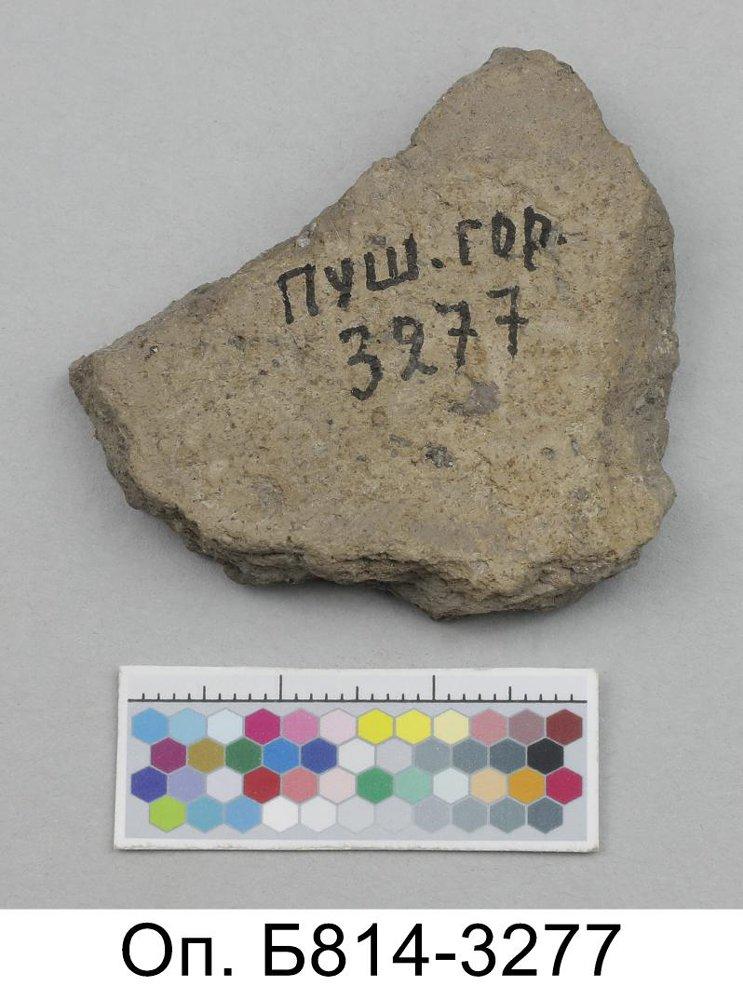 ПУШ. ГОР.
3277
Оп. Б814-3277